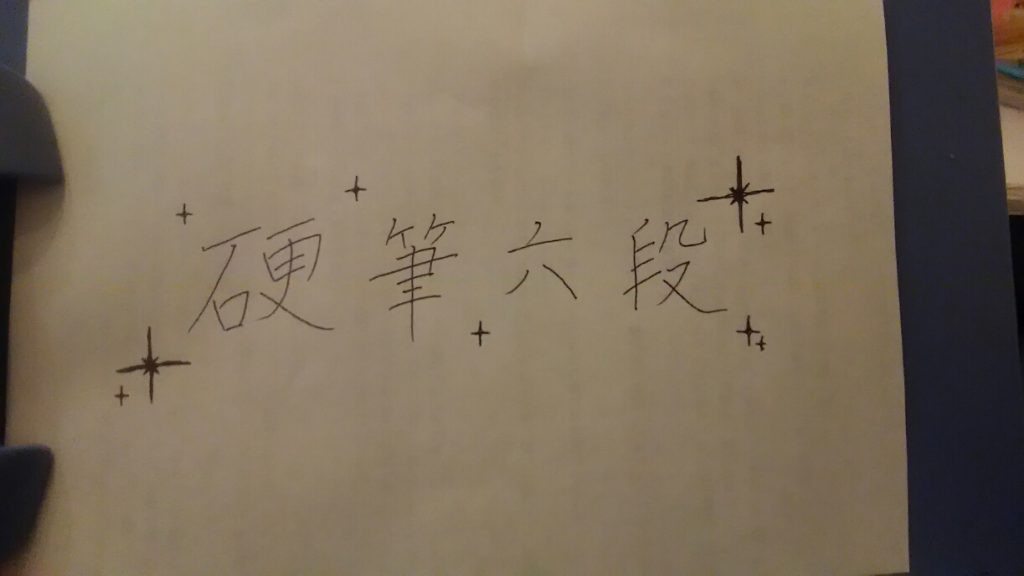 硬筆六段